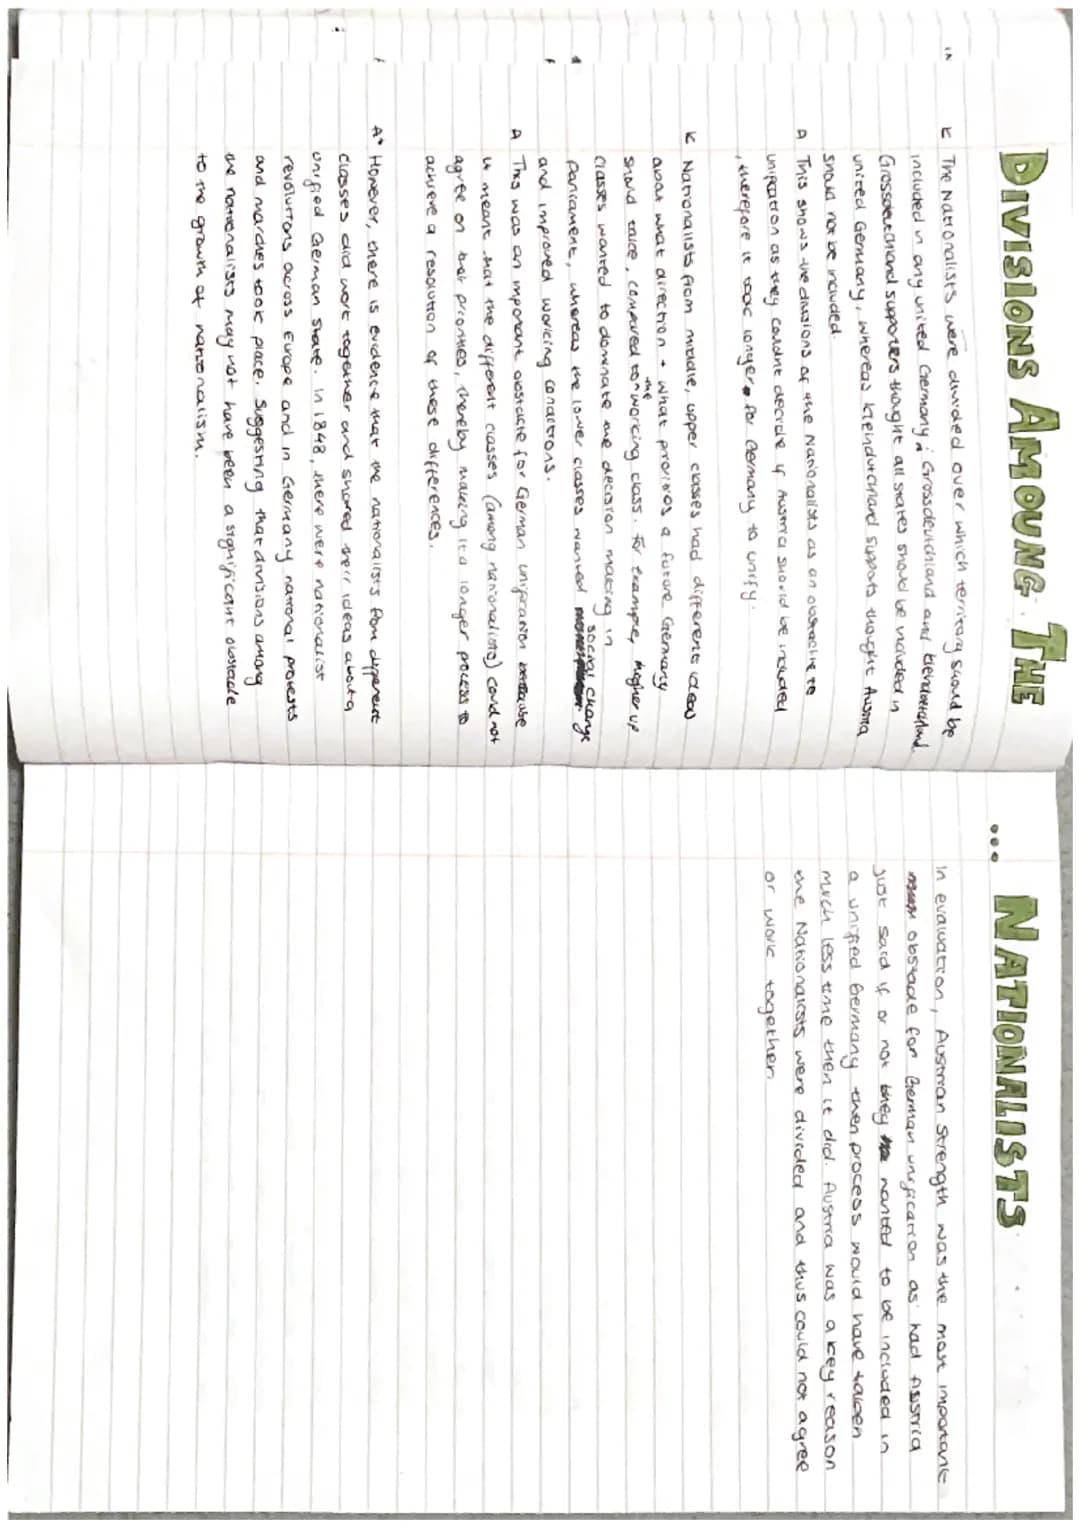 DIVISIONS AMOUNG THE
K The Nationalists were divided over which territory should be
included in any united Germany: Grossdeutchland and
Grossdeutchland supporters thought all states should be included in
united Germany, whereas kleindutchland supports thought Austria
should not be included.
A This shows the divisions of the Nationalists as an obstacle to
unification as they couldnt decide if Austria should be included
, therefore it took longer for Germany to unify.
K Nationalists from middle, upper classes had different ideas
about what direction + what priorities a future Germany
should take, compared to the working class. For example, higher up
classes wanted to dominate the decision making in
parliament, whereas the lower classes wanted social change
and improved working conditions.
A This was an important obstacle for German unification because
it meant that the different classes (among nationalists) could not
agree on their priorities, thereby making it a longer process to
achieve a resolution of these differences.
A* However, there is evidence that the nationalists from different
classes did work together and shared their ideas about a
unified German state. In 1848, there were nationalist
revolutions across Europe and in Germany national protests
and marches took place. Suggesting that divisions among
the nationalists may not have been a significant obstacle
to the growth of nationalism.
... NATIONALISTS
In evaluation, Austrian Strength was the most important
obstacle for German unification as had Austria
just said if or not they wanted to be included in
a unified Germany then process would have taken
much less time then it did. Austria was a key reason
the Nationalists were divided and thus could not agree
or work together.